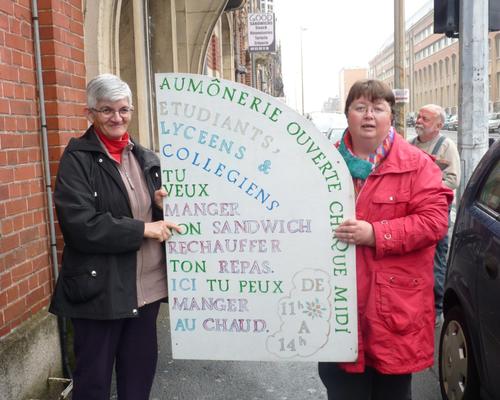 GOOD
SANDWICHS
AUMÔNERIE OUVERTE CHAQUE MIDI
ETUDIANTS,
LYCEENS &
COLLEGIENS
TU
VEUX
MANGER
TON SANDWICH
RECHAUFFER
TON REPAS.
ICI TU PEUX
MANGER
AU CHAUD.
DE
11h
A
14h